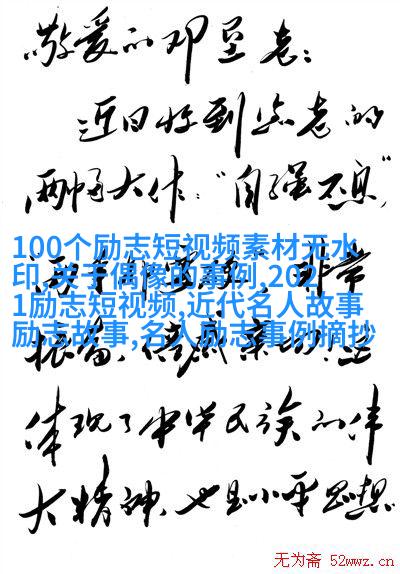 敬爱的邓垦老:
近日收到您老的
两幅大作:"自强不息"
100个励志短视频素材无水
印,关于偶像的事例,202
1励志短视频,近代名人故事
励志故事,名人励志事例摘抄
非常
振奋、倍感亲切!它
体现了中华民族的伟
大精神,也是小平思想
无为斋 52wwz.cn